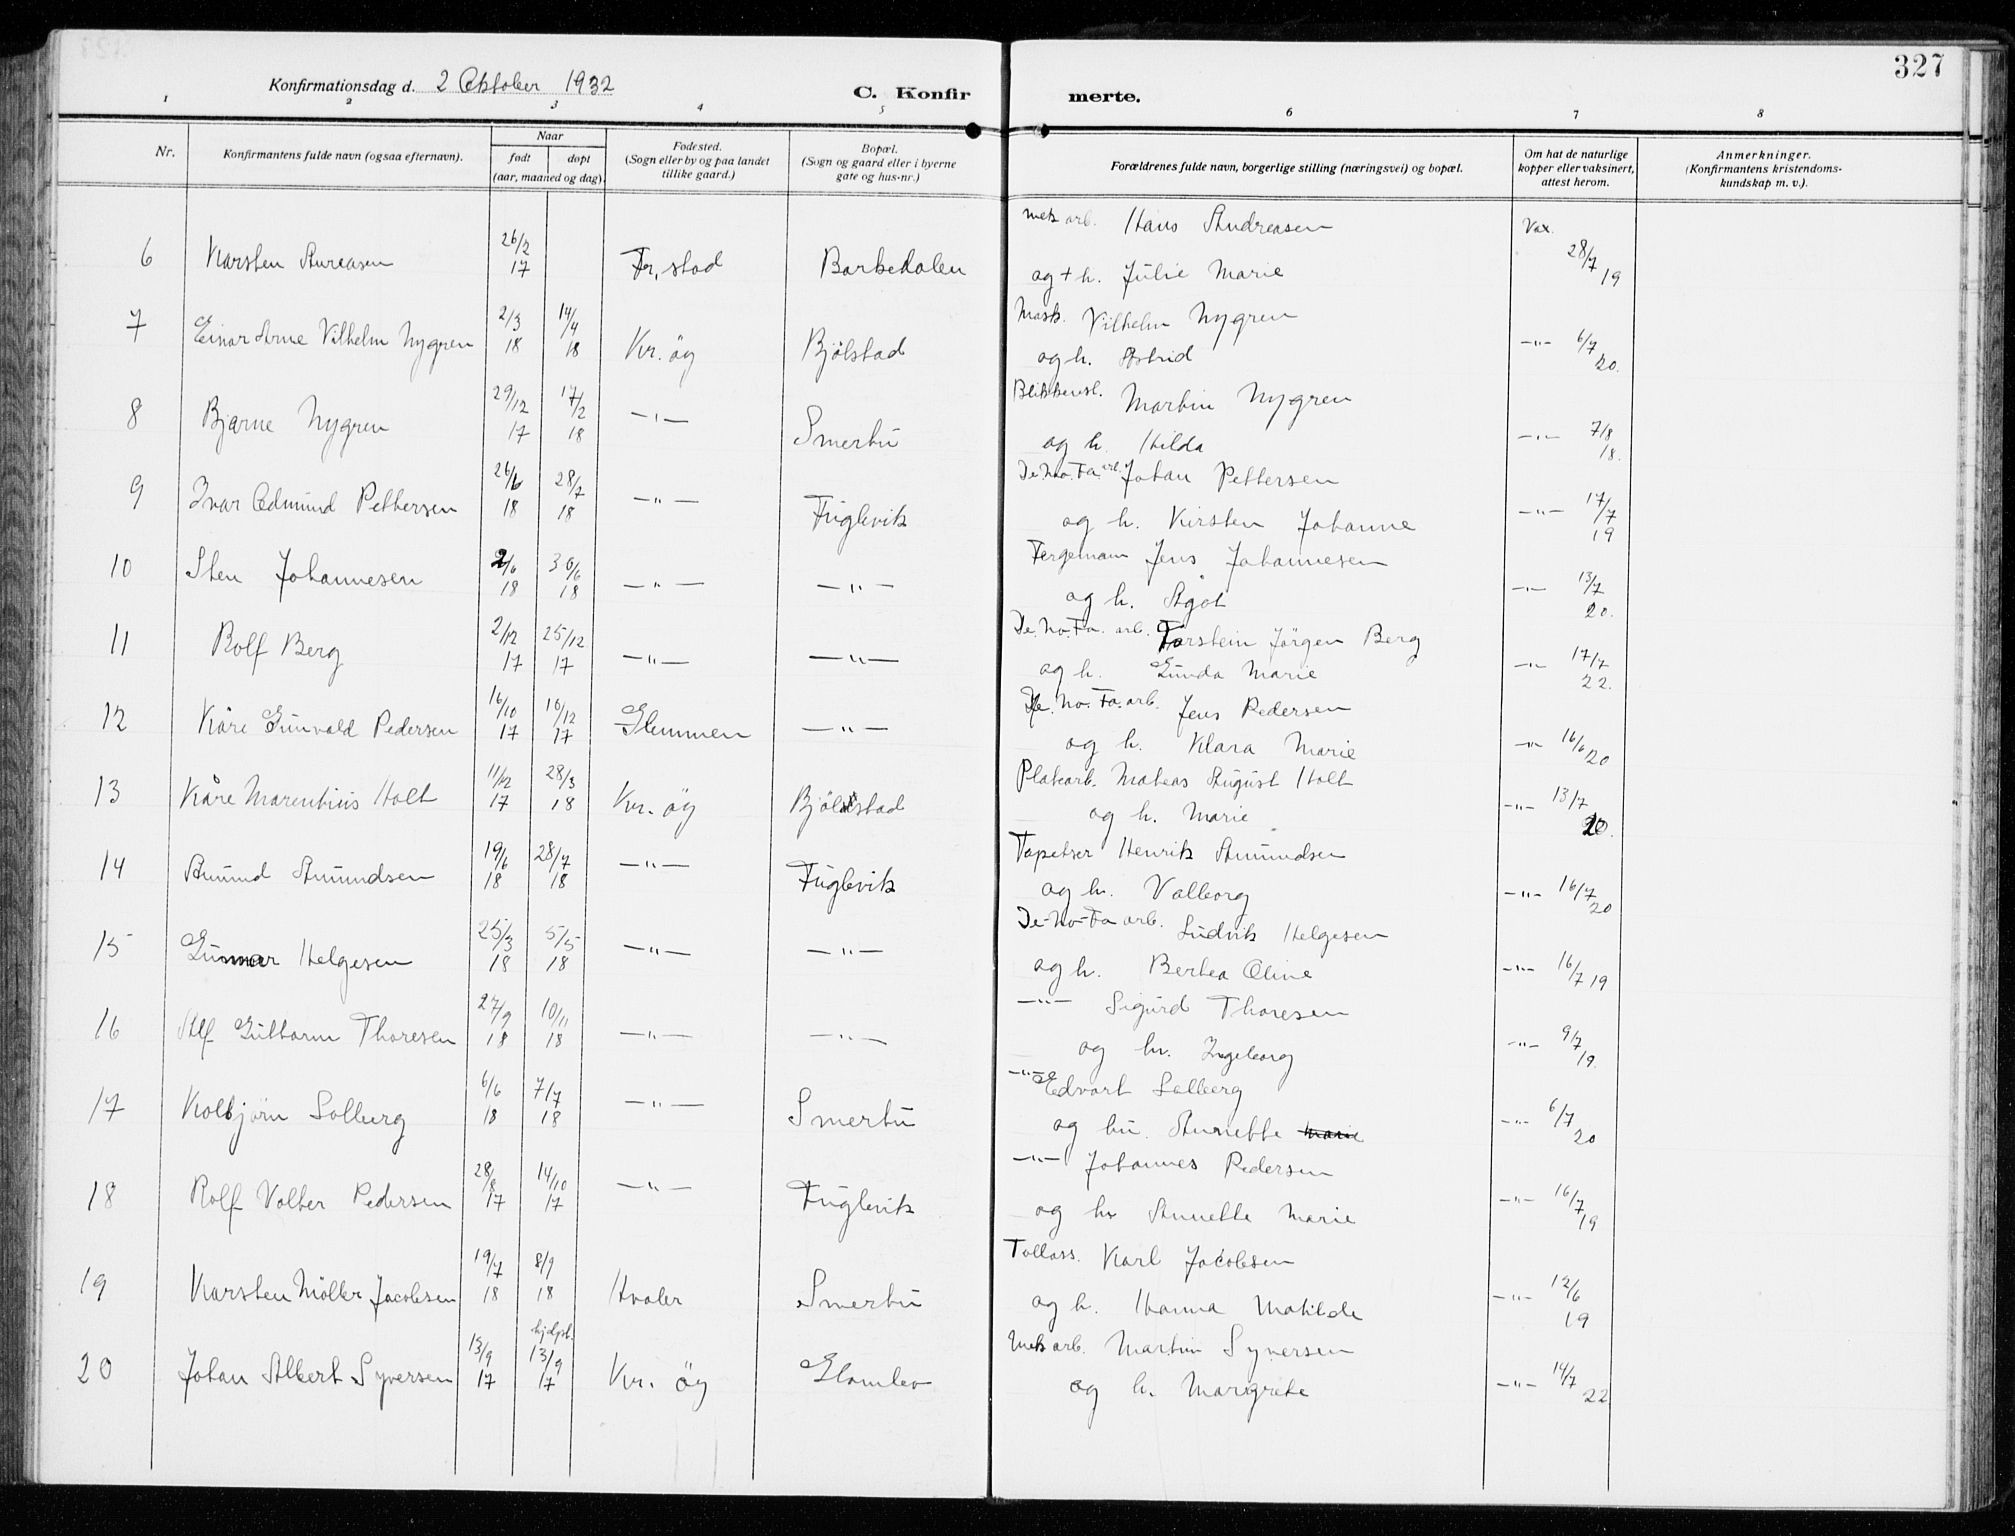 327
Konfirmationsdag d. 2 Oktober 1932
C. Konfirmerte.
1 2 3 4 5 6 7 8
Nr. Konfirmantens fulde navn (ogsaa efternavn). Naar født døpt (aar, maaned og dag). Fødested. (Sogn eller by og paa landet tillike gaard.) Bopæl. (Sogn og gaard eller i byerne gate og hus-nr.) Forældrenes fulde navn, borgerlige stilling (næringsvei) og bopæl. Om hat de naturlige kopper eller vaksinert, attest herom. Anmerkninger. (Konfirmantens kristendomskundskap m. v.).
mek arb. Hans Andreasen Vax.
6 Karsten Anreasen 26/2 17 Fr.stad Barkedalen og + h. Julie Marie 28/7 19
Mask. Vilhelm Nygren
7 Einar Arne Vilhelm Nygren 2/3 18 14/4 18 Kr. øy Bjölstad og h. Astrid —"— 6/7 20.
Blikkensl. Martin Nygren
8 Bjarne Nygren 29/12 17 17/2 18 —"— Smertu og h. Hilda —"— 7/8 18.
De-No-Fa. arb. Johan Pettersen
9 Ivar Edmund Pettersen 26/6 18 28/7 18 —"— Fuglevik og h. Kirsten Johanne —"— 17/7 19
Fergemann Jens Johannesen
10 Sten Johannesen 2/6 18 30/6 18 —"— —"— og h. Agot —"— 13/7 20.
De.No.Fa. arb. Torstein Jörgen Berg
11 Rolf Berg 2/12 17 25/12 17 —"— —"— og h. Gunda Marie —"— 17/7 22.
De.No.Fa. arb. Jens Pedersen
12 Kåre Gunvald Pedersen 16/10 17 16/12 17 Glemmen —"— og h. Klara Marie —"— 16/6 20
Platearb. Mateas August Holt
13 Kåre Marentius Holt 11/12 17 28/3 18 Kr. öy Bjölstad og h. Marie —"— 13/7 20.
Tapetser Henrik Amundsen
14 Amund Amundsen 19/6 18 28/7 18 —"— Fuglevik og h. Valborg —"— 16/7 20
De-No-Fa arb. Ludvik Helgesen
15 Gunnar Helgesen 25/3 18 5/5 18 —"— —"— og h. Bertea Oline —"— 16/7 19
—"— Sigurd Thoresen
16 Alf Guttorm Thoresen 27/9 18 10/11 18 —"— —"— og h. Ingeborg —"— 9/7 19.
—"— Edvart Solberg
17 Kolbjörn Solberg 6/6 18 7/7 18 —"— Smertu og hu. Annette Marie —"— 6/7 20
—"— Johannes Pedersen
18 Rolf Volter Pedersen 28/8 17 14/10 17 —"— Fuglevik og h. Annette Marie —"— 16/7 19
Tollass. Karl Jacobsen
19 Karsten Möller Jacobsen 19/7 18 8/9 18 Hvaler Smertu og h. Hanna Matilde —"— 12/6 19
Mek arb. Martin Syversen
20 Johan Albert Syversen 13/9 17 hjdpt. 13/9 17 Kr. öy Glomlev og h. Margrete —"— 14/7 22